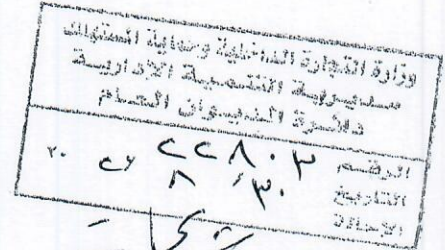 وزارة التجارة الداخلية وحماية المستهلك
مديرية التنمية الادارية
دائرة الديوان العام
الرقم ٢٢٨٠٣
التاريخ ٣٠ / ٨ ٢٠
الإحالة